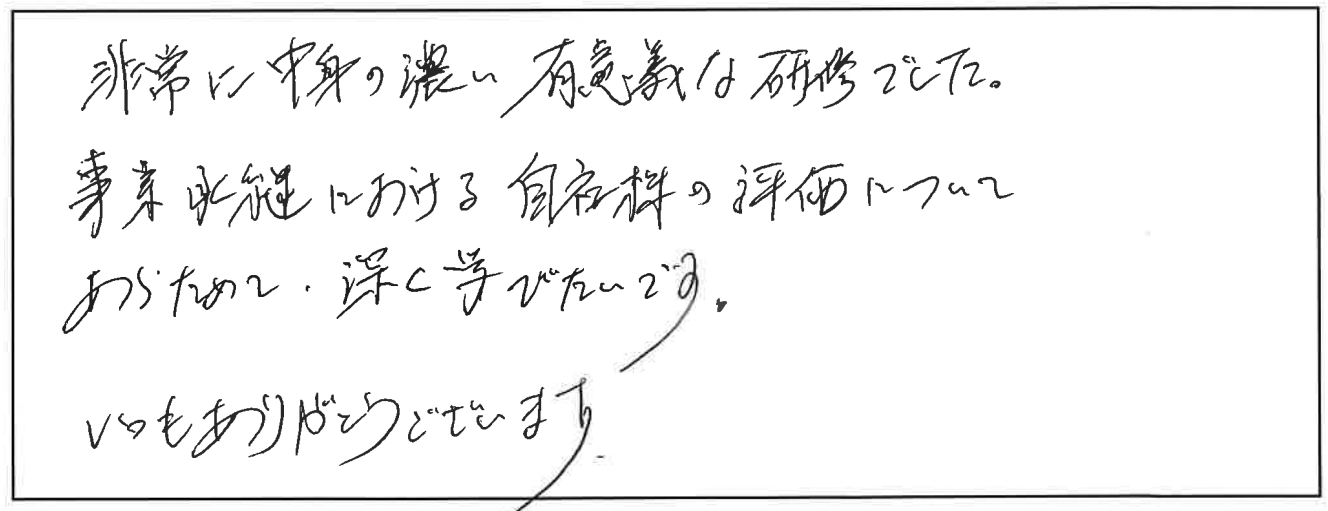 非常に中身の濃い有意義な研修でした。
事業承継における自社株の評価について
あらためて、深く学びたいです。
いつもありがとうございます。